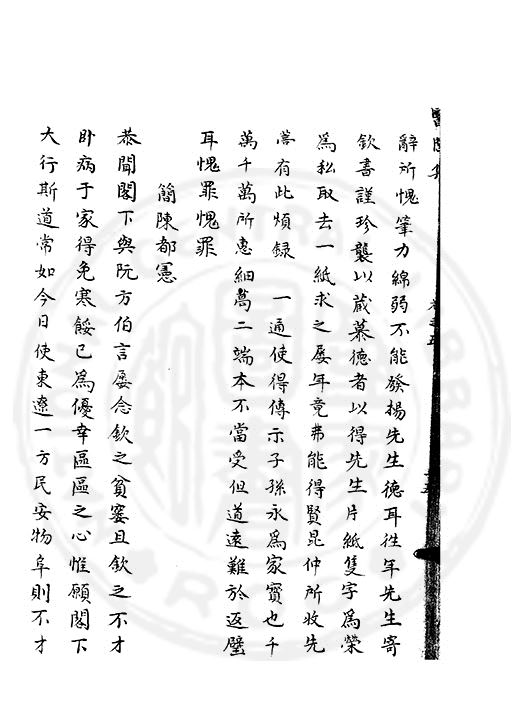 辭所愧筆力綿弱不能發揚先生德耳徃年先生寄
欽書謹珍襲以蔵慕德者以得先生片紙隻字為榮
為私取去一紙求之屡年竟弗能得賢昆仲所收先
嘗有此煩録 一通使得傳示子孫永為家寳也千
萬千萬所惠細葛二端本不當受但道遠難於返璧
耳愧罪愧罪
簡陳都憲
恭聞閣下與阮方伯言屡念欽之貧窭且欽之不才
卧病于家得免寒餒已為優幸區區之心惟願閣下
大行斯道常如今日使東遼一方民安物阜則不才